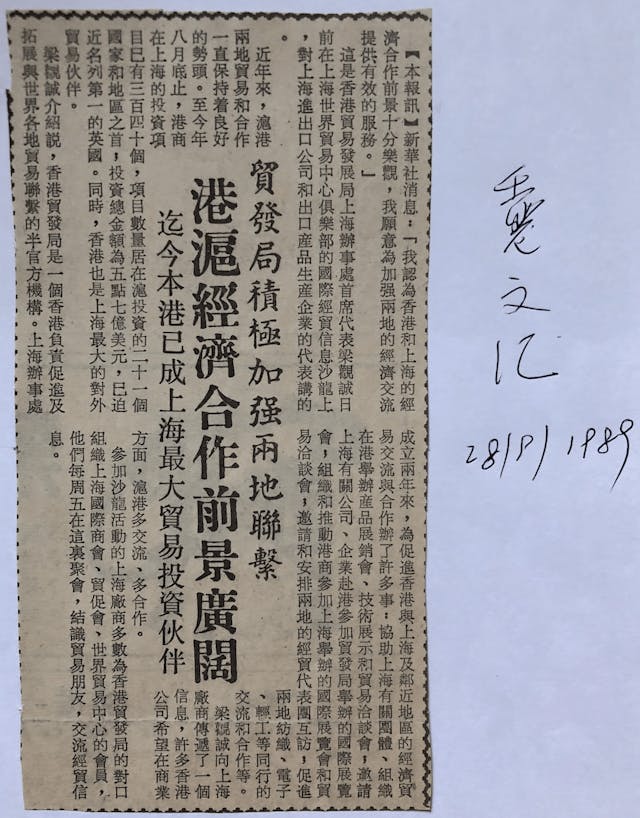 貿發局積極加强兩地聯繫
港滬經濟合作前景廣闊
迄今本港已成上海最大貿易投資伙伴
【本報訊】新華社消息：「我認為香港和上海的經
濟合作前景十分樂觀，我願意為加强兩地的經濟交流
提供有效的服務。」
這是香港貿易發展局上海辦事處首席代表梁觀誠日
前在上海世界貿易中心俱樂部的國際經貿信息沙龍上
，對上海進出口公司和出口産品生産企業的代表講的
。
近年來，滬港
兩地貿易和合作
一直保持着良好
的勢頭。至今年
八月底止，港商
在上海的投資項
目已有三百四十個，項目數量居在滬投資的二十一個
國家和地區之首；投資總金額為五點七億美元，已迫
近名列第一的英國。同時，香港也是上海最大的對外
貿易伙伴。
梁觀誠介紹説，香港貿發局是一個香港負責促進及
拓展與世界各地貿易聯繫的半官方機構。上海辦事處
成立兩年來，為促進香港與上海及鄰近地區的經濟貿
易交流與合作辦了許多事：協助上海有關團體、組織
在港舉辦産品展銷會、技術展示和貿易洽談會，邀請
上海有關公司、企業赴港參加貿發局舉辦的國際展覽
會，組織和推動港商參加上海舉辦的國際展覽會和貿
易洽談會，邀請和安排兩地的經貿代表團互訪，促進
兩地紡織、電子
、輕工等同行的
交流和合作等。
梁觀誠向上海
廠商傳遞了一個
信息，許多香港
公司希望在商業
方面，滬港多交流、多合作。
參加沙龍活動的上海廠商多數為香港貿發局的對口
組織上海國際商會、貿促會、世界貿易中心的會員，
他們每周五在這裏聚會，結識貿易朋友，交流經貿信
息。
文汇
28/9/1989